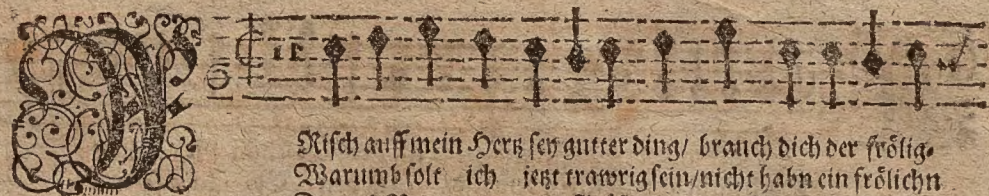 FRisch auff mein Hertz sey gutter ding/ brauch dich der frölig-
Warumb solt ich jetzt trawrig sein/nicht habn ein frölichn